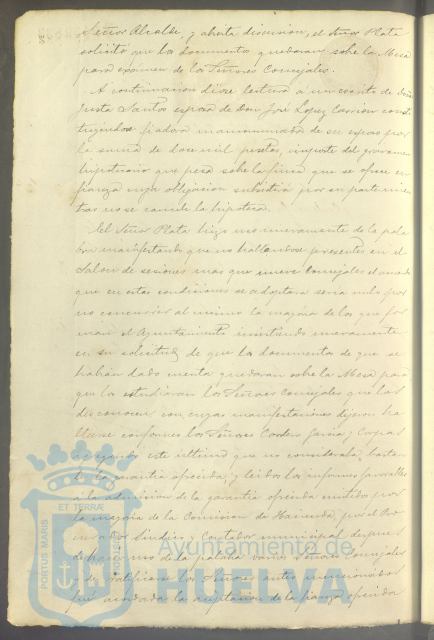 Señor Alcalde, y abierta discusion, el Señor Plata
solicitó que los documentos quedaran sobre la Mesa
para exámen de los Señores Concejales.
A continuacion dióse lectura a un escrito de Doña
Justa Santos esposa de Don José Lopez Carrion const
tuyendose fiadora mancomunada de su esposo por
la suma de doce mil pesetas, importe del gravamen
hipotecario que pesa sobre la finca que se ofrece en
fianza cuya obligacion subsistira por su parte mien
tras no se cancele la hipoteca.
El Señor Plata hizo uso nuevamente de la pala
bra manifestando que no hallandose presentes en el
Salon de sesiones mas que nueve Concejales el acuerdo
que en estas condiciones se adoptara seria nulo por
no concurrir al mismo la mayoria de los que for
man el Ayuntamiento insistiendo nuevamente
en su solicitud de que los documentos de que se
habian dado cuenta quedaran sobre la Mesa para
que los estudiaran los Señores Concejales que los
desconocen con cuyas manifestaciones dijeron ha
llarse conformes los Señores Cordero Garcia y Corpas
agregando este ultimo que no consideraba bastan
te la garantia ofrecida; y leidos los informes favorables
a la admision de la garantia ofrecida emitido por
la mayoria de la Comision de Hacienda, por el Pro
curador Sindico y Contador municipal despues
de hacer uso de la palabra varios Señores Concejales
y de ratificarse los Señores antes mencionados
fué acordada la aceptacion de la fianza ofrecida
PORTUS MARIS
ET TERRÆ
CUSTODIA
Ayuntamiento de
HUELVA